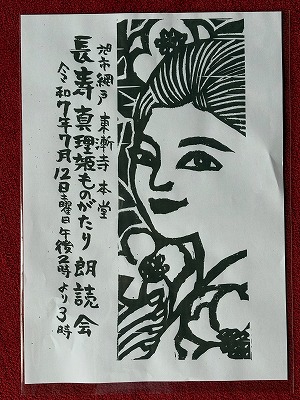 旭市網戸 東漸寺 本堂
長寿 真理姫ものがたり 朗読会
令和7年7月12日土曜日午後2時より3時